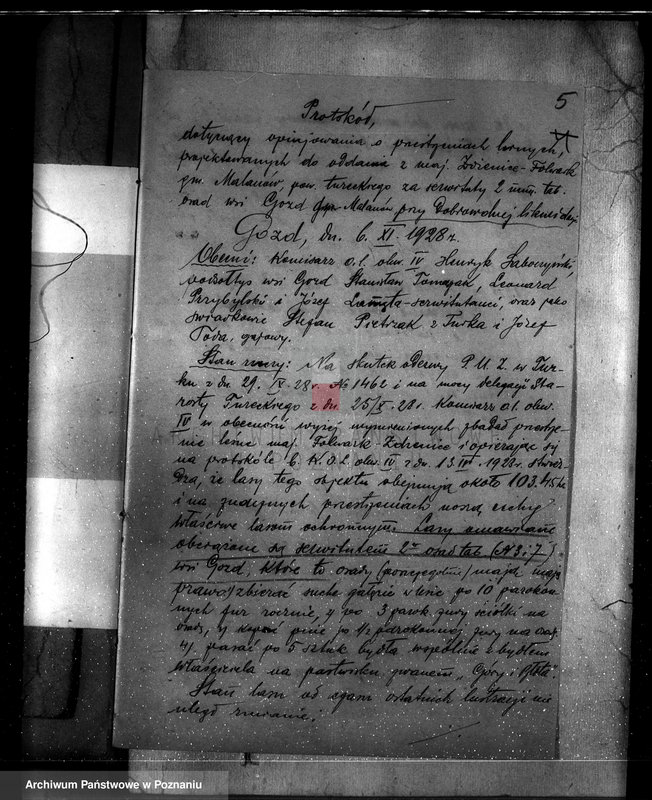 5
Protokół,
dotyczący opinjowania o przestrzeniach leśnych,
projektowanych do oddania z maj. Zdzienice-Folwark
gm. Malanów, pow. tureckiego za serwituty 2 um. tab.
osad wsi Gozd gm. Malanów przy Dobrowolnej likwidacji
Gozd, dn. 6. XI 1928 r.
Obecni: Komisarz o.l. obw. IV Henryk
podsołtys wsi Gozd Stanisław Tomczak, Leonard
Przybylski i Józef serwitutanci, oraz jako
świadkowie Stefan Pietrzak z Turka i Józef
Toda, gajowy.
Stan rzeczy: Na skutek odezwy P.U.Z. w Tur-
ku z dn. 29. IX. 28 r. № 1462 i na mocy delegacji Sta-
rosty Tureckiego z dn. 25/X. 28 r. Komisarz o.l. obw.
IV w obecności wyżej wymienionych zbadał przestrze-
nie leśne maj. Folwark-Zdzienice i opierając się
na protokóle b. K.O.L. obw. IV z dn. 13 1928 r. stwier-
dza, że lasy tego objektu obejmują około 103.45 ha
i na żadnych przestrzeniach noszą cechy
właściwe lasom ochronnym. Lasy omawiane
obciążone są serwitutem 2ch osad tab. (№ 3 i 7)
wsi Gozd, które to osady (poszczególnie) mają
prawo) zbierać suche gałęzie w lesie po 10 parokon-
nych fur rocznie, po 3 parok. fury ściółki na
osadę, kopać pnie po 1/2 parokonnej fury na osadę
4/. paśać po 5 sztuk bydła wspólnie z bydłem
właściciela na pastwisku zwanem „Góry i
Stan lasu od czasu ostatniej lustracji nie
uległ zmianie.
Archiwum Państwowe w Poznaniu